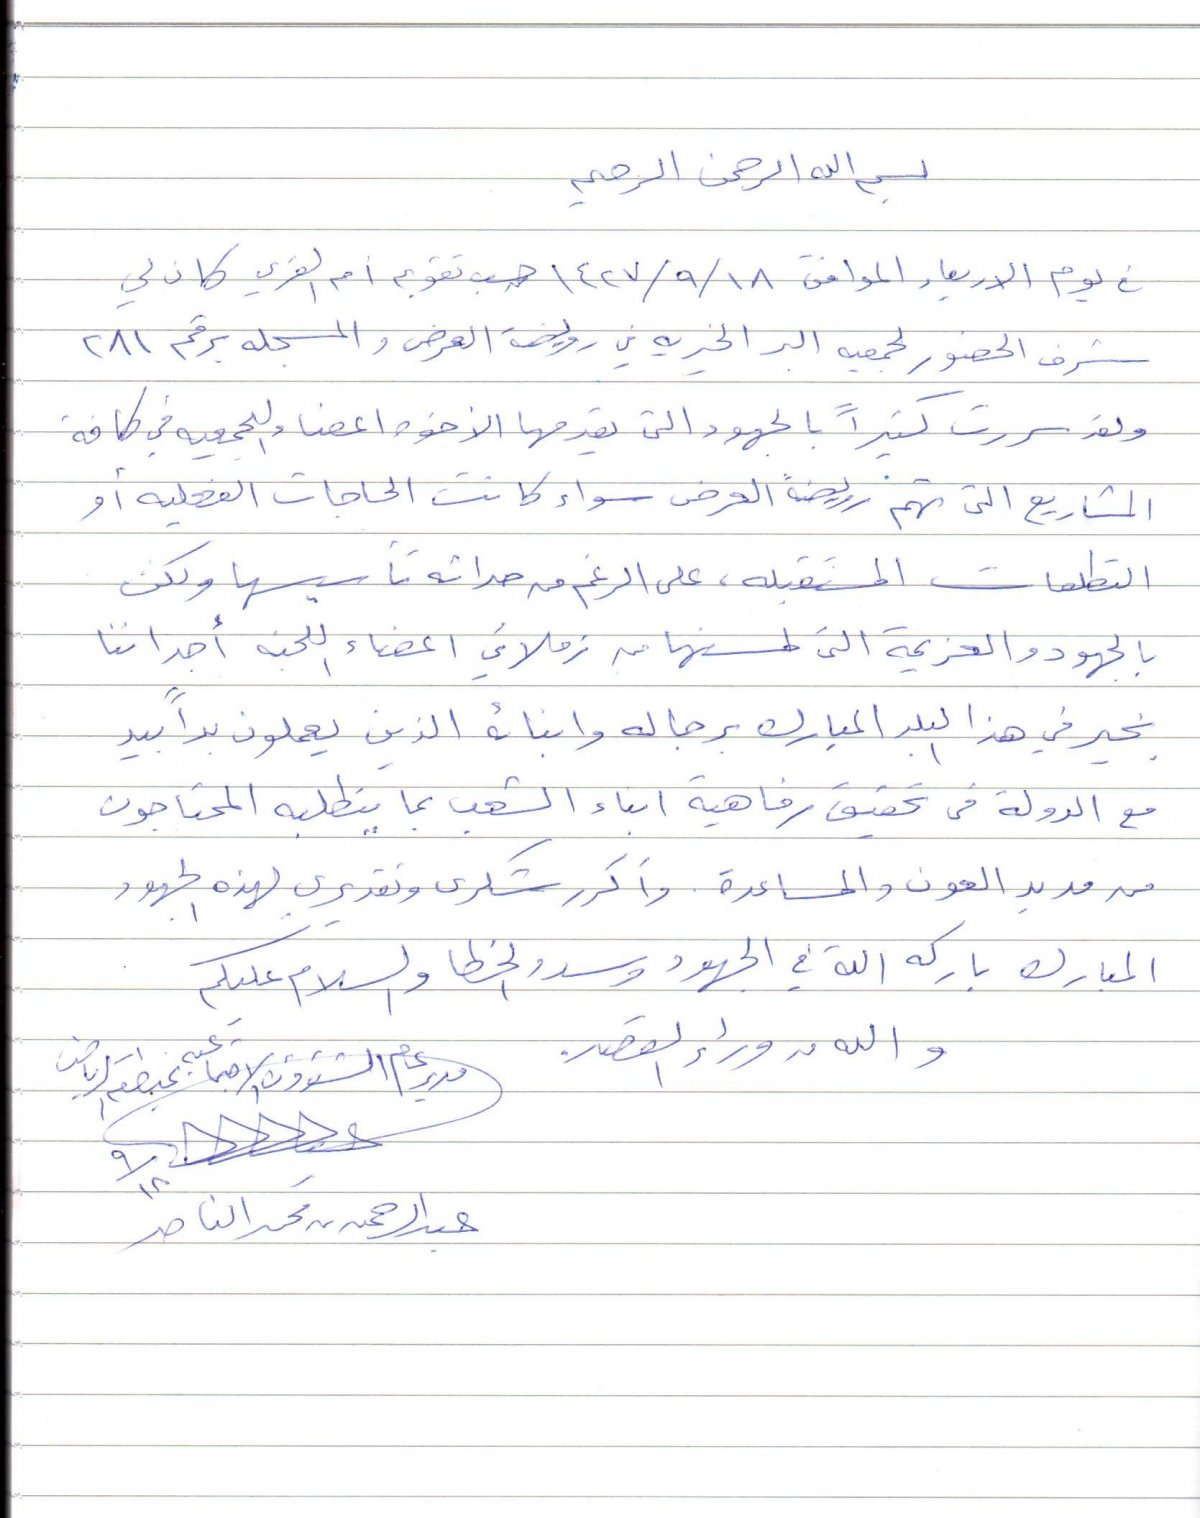 بسم الله الرحمن الرحيم
في يوم الاربعاء الموافق ١٤٢٧/٩/١٨ حسب تقويم أم القرى كان لي
شرف الحضور لجمعيه البر الخيريه في رويضة العرض والمسجله برقم ٢٨١
ولقد سررت كثيراً بالجهود التي يقدمها الأخوه اعضاء الجمعيه في كافة
المشاريع التي تهم رويضة العرض سواء كانت الحاجات الفعليه أو
التطلعات المستقبله، على الرغم من حداثه تأسيسها ولكن
بالجهود والعزيمة التي لمستها من زملائي اعضاء اللجنه أجد اننا
بخير في هذا البلد المبارك برجاله وابنائه الذين يعملون يداً بيد
مع الدولة في تحقيق رفاهية ابناء الشعب بما يتطلبه المحتاجون
من مد يد العون والمساعدة. وأكرر شكرى وتقديري لهذه الجهود
المبارك بارك الله في الجهود وسدد الخطا والسلام عليكم
والله من وراء القصد.
مدير عام الشؤون الاجتماعيه بمنطقة الرياض
٩/١٨
عبدالرحمن بن محمد الناصر